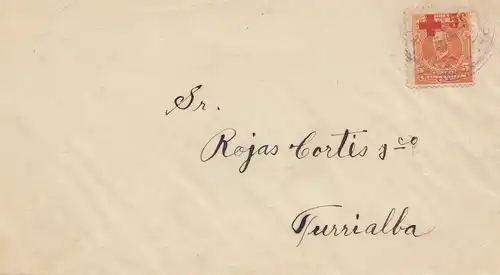 Sr.
Rojas Cortés y co
Turrialba